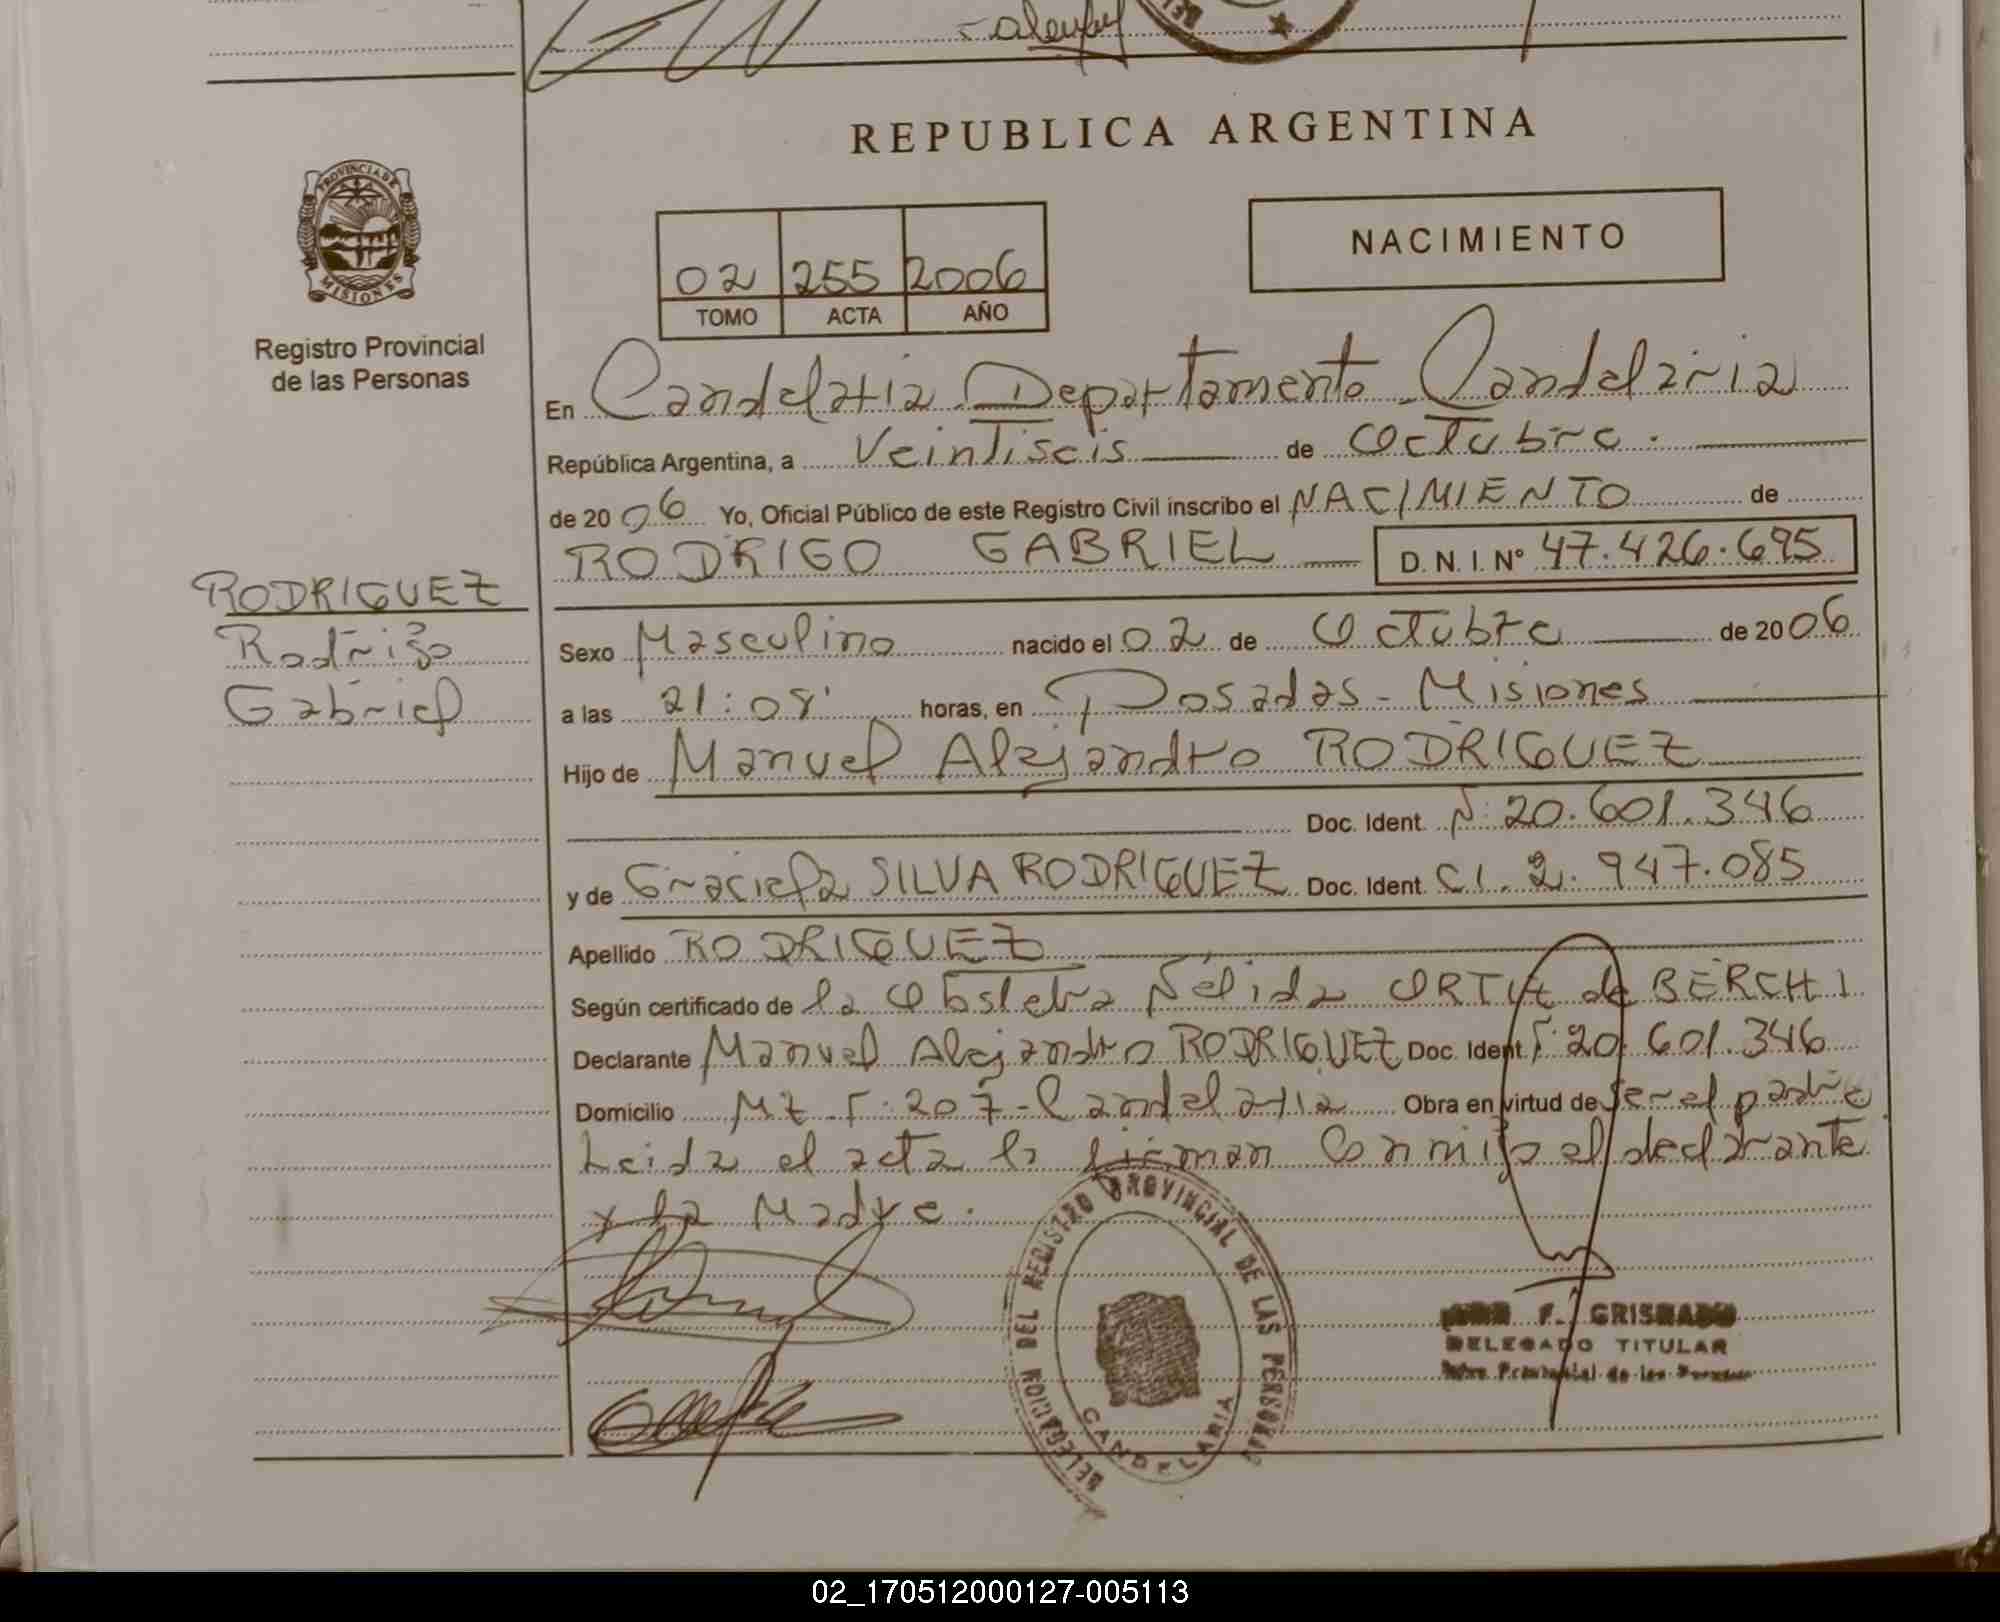 REPUBLICA ARGENTINA
PROVINCIA DE
MISIONES
Registro Provincial
de las Personas
02 255 2006
TOMO ACTA AÑO
NACIMIENTO
En Candelaria Departamento Candelaria
República Argentina, a Veintiseis de Octubre.
de 2006 Yo, Oficial Público de este Registro Civil inscribo el NACIMIENTO de
RODRIGO GABRIEL D.N.I. Nº 47.426.695
RODRIGUEZ
Rodrigo
Gabriel
Sexo Masculino nacido el 02 de Octubre de 2006
a las 21:08' horas, en Posadas - Misiones
Hijo de Manuel Alejandro RODRIGUEZ
Doc. Ident. N: 20.601.346
y de Graciela SILVA RODRIGUEZ Doc. Ident. CI. 2.947.085
Apellido RODRIGUEZ
Según certificado de la Obstetra Nélida ORTIZ de BERCHI
Declarante Manuel Alejandro RODRIGUEZ Doc. Ident. 20.601.346
Domicilio MZ 207 - Candelaria Obra en virtud de ser el padre
Leida el acta la firman Conmigo el declarante
y la Madre.
DELEGACION DEL REGISTRO PROVINCIAL DE LAS PERSONAS
CANDELARIA
F. GRISNADO
DELEGADO TITULAR
Provincial de las Personas
02_170512000127-005113